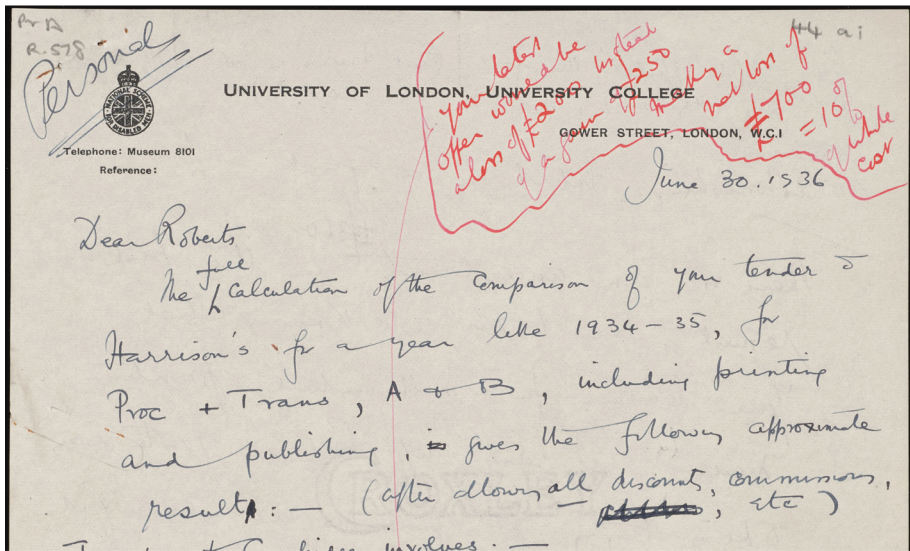 Pr A
R.578
44 ai
Personal
NATIONAL SCHEME
FOR DISABLED MEN
UNIVERSITY OF LONDON, UNIVERSITY COLLEGE
GOWER STREET, LONDON, W.C.I
Telephone: Museum 8101
Reference:
your latest
offer would be
a loss of £200 instead
of a gain of £250
making a
net loss of
£700
= 10%
of whole
cost
June 30. 1936
Dear Roberts
The full calculation of the comparison of your tender &
Harrison's for a year like 1934-35, for
Proc + Trans, A + B, including printing
and publishing, gives the following approximate
result: — (after allowing all discounts, commissions,
, etc)
involves. —